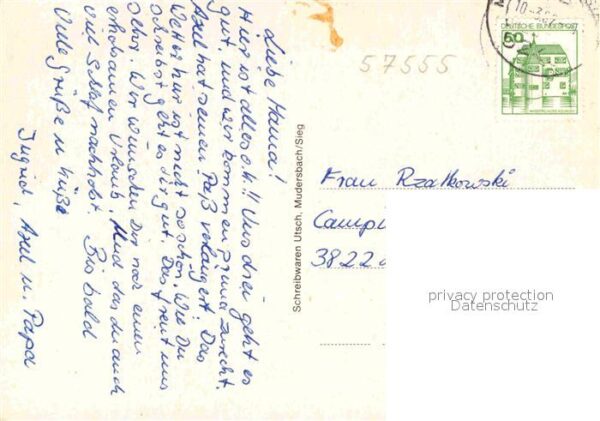 Liebe Hanna!
Hier ist alles ok!! Uns drei geht es
gut, und wir kommen zurecht.
Axel hat seinen Paß verlängert. Das
Wetter hier ist nicht so schön. Wie Du
schreibst geht es dir gut. Das freut uns
sehr. Wir wünschen Dir noch einen
erholsamen Urlaub. Und das du auch
viel Schlaf nachholst. Bis bald
Viele Grüße u. Küße
Ingrid, Axel u. Papa
Schreibwaren Utsch, Mudersbach/Sieg
57555
DEUTSCHE BUNDESPOST
60
Frau Rzatkowski
Campi
3822
privacy protection
Datenschutz